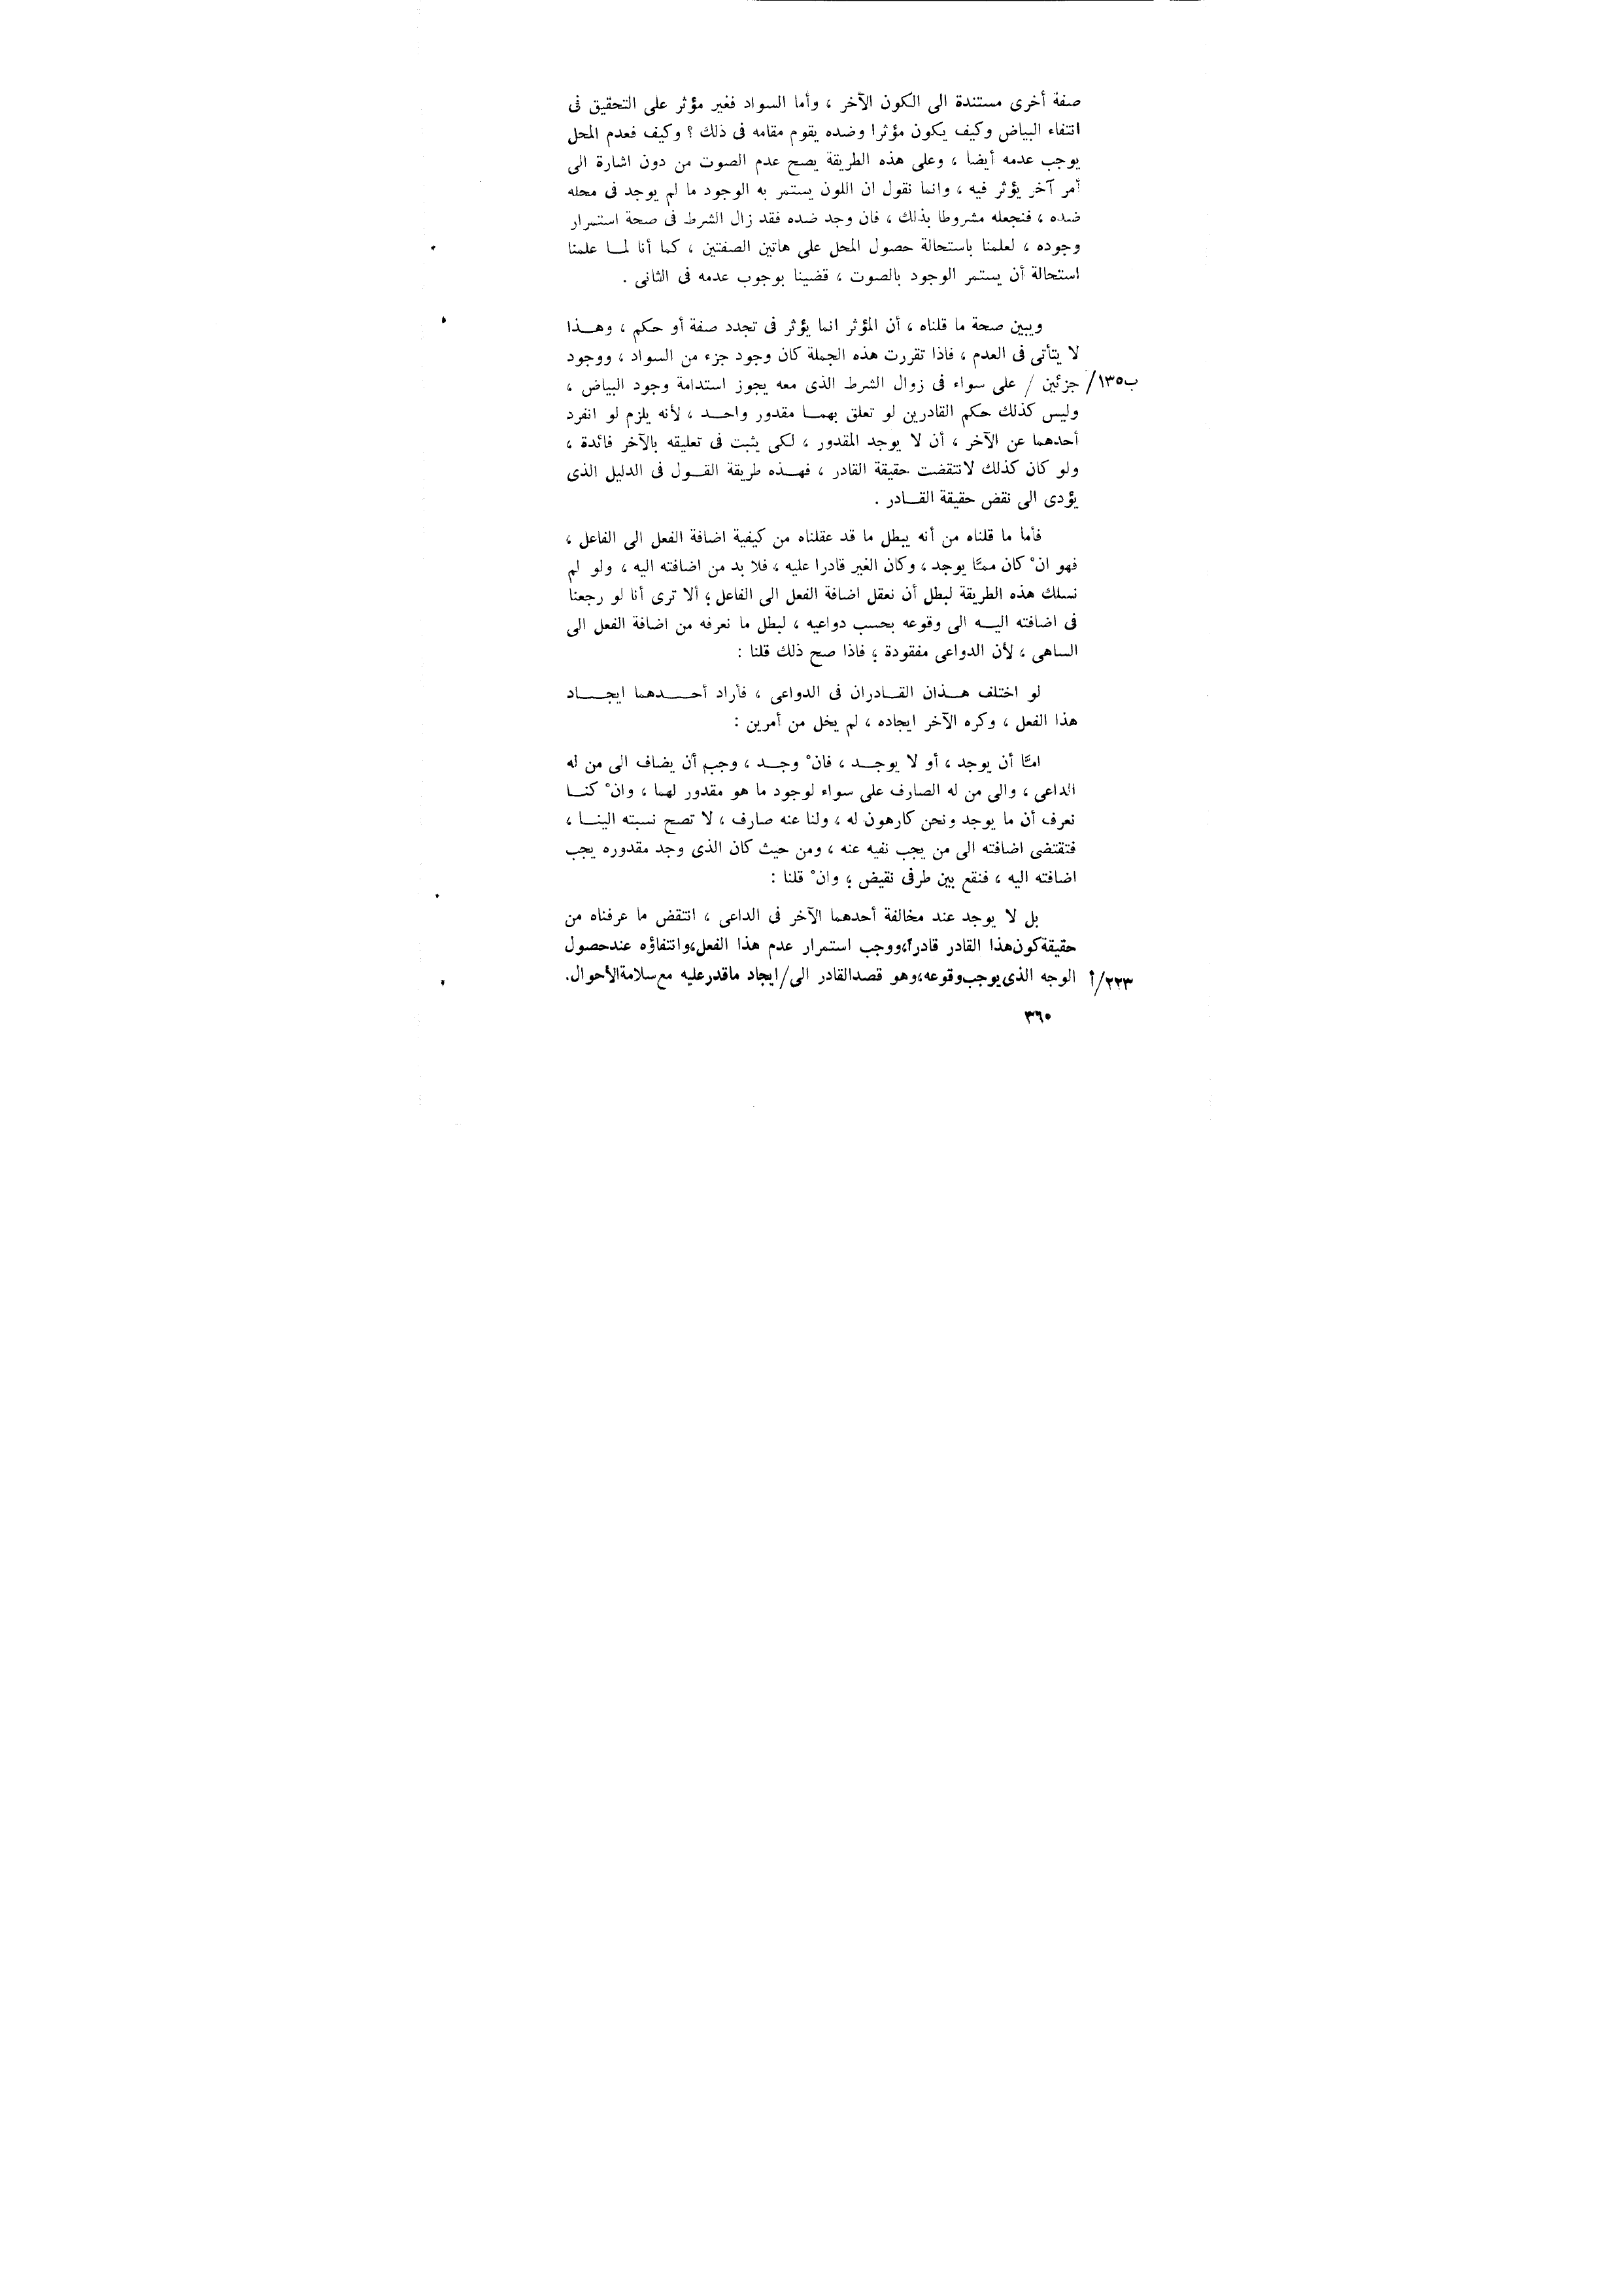 صفة أخرى مستندة الى الكون الآخر ، وأما السواد فغير مؤثر على التحقيق فى
انتفاء البياض وكيف يكون مؤثرا وضده يقوم مقامه فى ذلك ؟ وكيف فعدم المحل
يوجب عدمه أيضا ، وعلى هذه الطريقة يصح عدم الصوت من دون اشارة الى
أمر آخر يؤثر فيه ، وانما نقول ان اللون يستمر به الوجود ما لم يوجد فى محله
ضده ، فنجعله مشروطا بذلك ، فان وجد ضده فقد زال الشرط فى صحة استمرار
وجوده ، لعلمنا باستحالة حصول المحل على هاتين الصفتين ، كما أنا لمــا علمنا
استحالة أن يستمر الوجود بالصوت ، قضينا بوجوب عدمه فى الثانى .
ويبين صحة ما قلناه ، أن المؤثر انما يؤثر فى تجدد صفة أو حكم ، وهــذا
لا يتأتى فى العدم ، فاذا تقررت هذه الجملة كان وجود جزء من السواد ، ووجود
ب١٣٥/ جزئين / على سواء فى زوال الشرط الذى معه يجوز استدامة وجود البياض ،
وليس كذلك حكم القادرين لو تعلق بهمــا مقدور واحــد ، لأنه يلزم لو انفرد
أحدهما عن الآخر ، أن لا يوجد المقدور ، لكى يثبت فى تعليقه بالآخر فائدة ،
ولو كان كذلك لانتقضت حقيقة القادر ، فهــذه طريقة القــول فى الدليل الذى
يؤدى الى نقض حقيقة القــادر .
فأما ما قلناه من أنه يبطل ما قد عقلناه من كيفية اضافة الفعل الى الفاعل ،
فهو انْ كان ممّا يوجد ، وكان الغير قادرا عليه ، فلا بد من اضافته اليه ، ولو لم
نسلك هذه الطريقة لبطل أن نعقل اضافة الفعل الى الفاعل ؛ ألا ترى أنا لو رجعنا
فى اضافته اليــه الى وقوعه بحسب دواعيه ، لبطل ما نعرفه من اضافة الفعل الى
الساهى ، لأن الدواعى مفقودة ؛ فاذا صح ذلك قلنا :
لو اختلف هــذان القــادران فى الدواعى ، فأراد أحــدهما ايجــاد
هذا الفعل ، وكره الآخر ايجاده ، لم يخل من أمرين :
امّا أن يوجد ، أو لا يوجــد ، فانْ وجــد ، وجب أن يضاف الى من له
الداعى ، والى من له الصارف على سواء لوجود ما هو مقدور لهما ، وانْ كنــا
نعرف أن ما يوجد ونحن كارهون له ، ولنا عنه صارف ، لا تصح نسبته الينــا ،
فتقتضى اضافته الى من يجب نفيه عنه ، ومن حيث كان الذى وجد مقدوره يجب
اضافته اليه ، فنقع بين طرفى نقيض ؛ وانْ قلنا :
بل لا يوجد عند مخالفة أحدهما الآخر فى الداعى ، انتقض ما عرفناه من
حقيقة كون هذا القادر قادراً، ووجب استمرار عدم هذا الفعل، وانتفاؤه عند حصول
٢٢٣/أ الوجه الذى يوجب وقوعه، وهو قصد القادر الى/ ايجاد ما قدر عليه مع سلامة الأحوال.
٣٦٠